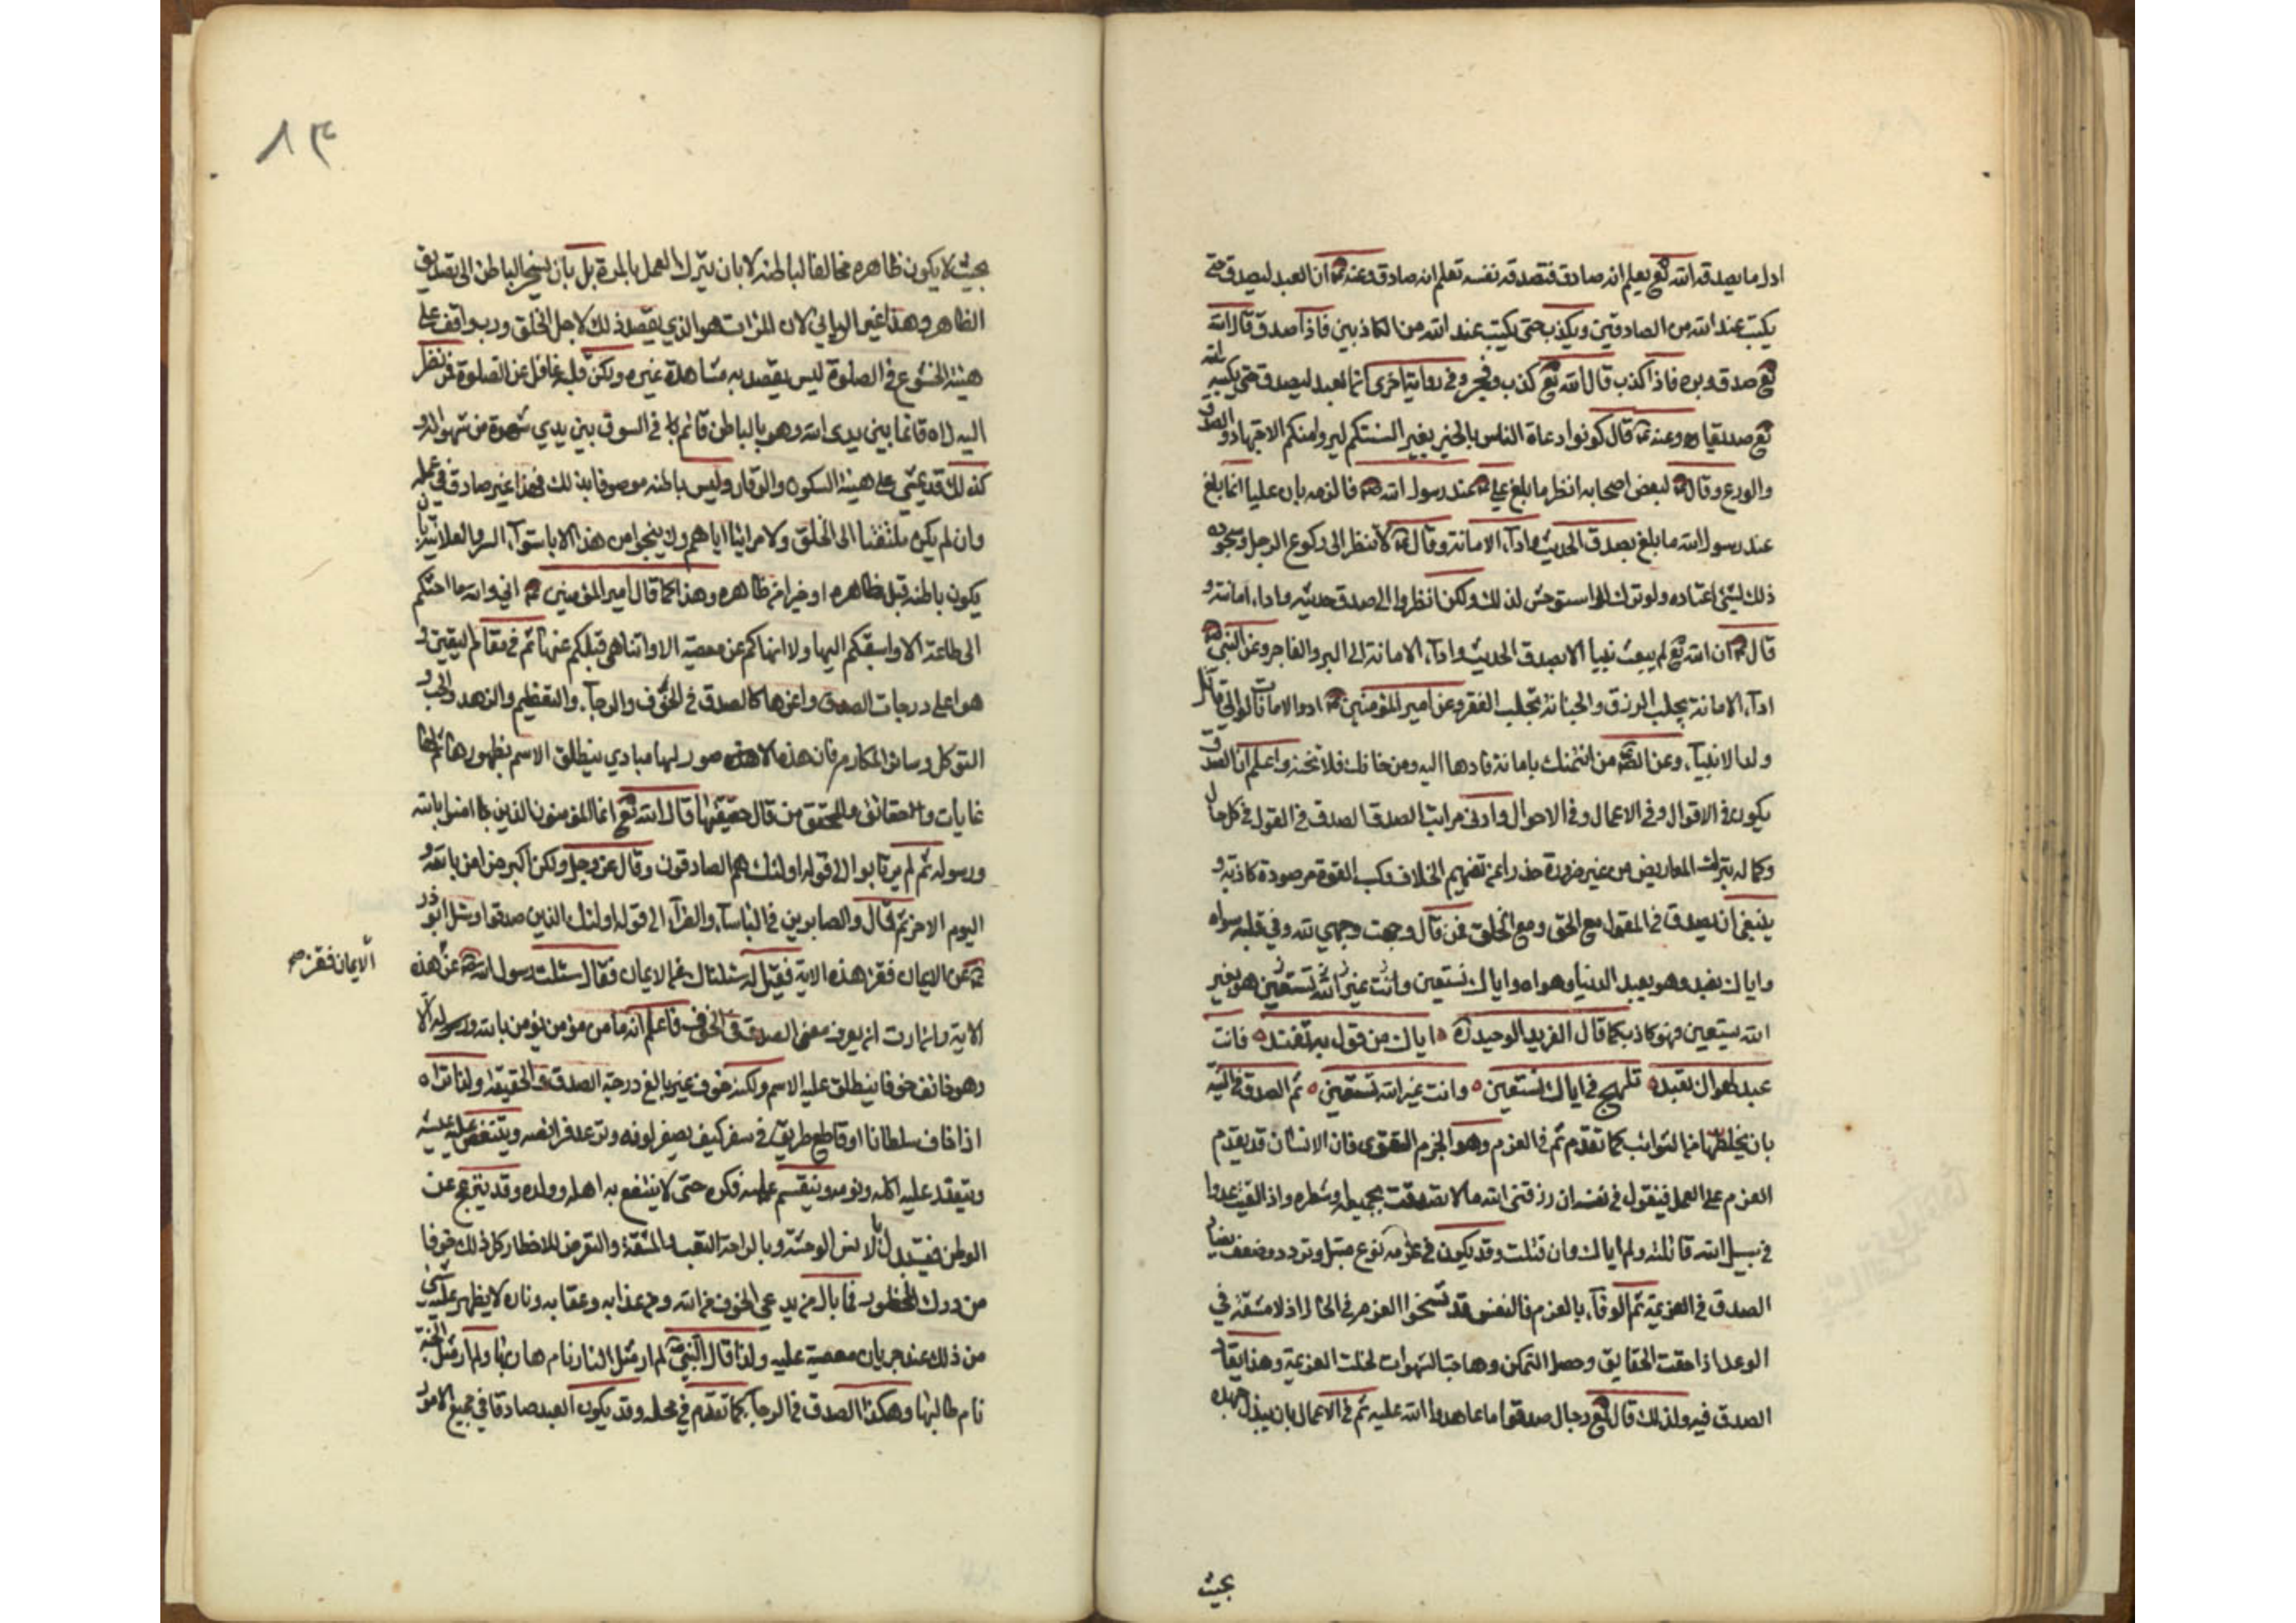 اول ما يصدقه الله تع يعلم انه صادق فتصدقه نفسه تعلم انه صادق وعنه ع ان العبد ليصدق حتى
يكتب عند الله من الصادقين ويكذب حتى يكتب عند الله من الكاذبين فاذا صدق قال الله
تع صدق وبر فاذا كذب قال الله تع كذب وفجر وفي رواية اخرى انما العبد ليصدق حتى يكتبه الله
تع صديقا وعنه ع قال كونوا دعاة الناس بالخير بغير السنتكم ليروا منكم الاجتهاد والصدق
والورع وقال ع لبعض اصحابه انظر ما بلغ علي ع عند رسول الله ص فالزمه بان عليا انما بلغ
عند رسول الله ما بلغ بصدق الحديث واداء الامانة وقال ع لا تنظر الى ركوع الرجل وسجوده
ذلك لشئ اعتاده ولو تركه استوحش لذلك ولكن انظروا الى صدق حديثه واداء امانته و
قال ع ان الله تع لم يبعث نبيا الا بصدق الحديث واداء الامانة الى البر والفاجر وعن النبي ص
اداء الامانة يجلب الرزق والخيانة تجلب الفقر وعن امير المؤمنين ع ادوا الامانات ولو الى قاتل
ولد الانبياء وعن الص من ائتمنك بامانة فادها اليه ومن خانك فلا تخنه واعلم ان الصدق
يكون في الاقوال وفي الاعمال وفي الاحوال وادنى مراتب الصدق الصدق في القول في كل حال
وكماله بترك المعاريض من غير ضرورة حذرا عن تفهيم الخلاف وكسب القوة صورة كاذبة و
ينبغي ان يصدق في القول مع الحق ومع الخلق فمن قال وجهت وجهي لله وفي قلبه سواه
واياك نعبد وهو يعبد الدنيا وهواه واياك نستعين وانت غير الله تستعين هو بغير
الله يستعين فهو كاذب كما قال الفريد الوحيد ره اياك من قول به تفتد فانت
عبد لهواك تعبد تلهج في اياك نستعين وانت غير الله تستعين ثم الصدق في النية
بان يخلصها من الشوائب كما تقدم ثم في العزم وهو الجزم القوى فان الانسان قد يقدم
العزم على العمل فيقول في نفسه ان رزقني الله مالا تصدقت بجميعه او شطره واذ القيت عدوا
في سبيل الله قاتلته ولم ابال وان قتلت وقد يكون في عزمه نوع ميل وتردد وضعف يضاد
الصدق في العزيمة ثم الوفاء بالعزم فالنفس قد تسخوا العزم في الحال اذ لا مشقة في
الوعد اذا حقت الحقايق وحصل التمكن وهاجت الشهوات لحلت العزيمة وهذا يضاد
الصدق فيه ولذلك قال تع رجال صدقوا ما عاهدوا الله عليه ثم في الاعمال بان يبذل جهده
بحيث
٨٣
بحيث لا يكون ظاهره مخالفا لباطنه لا بان يترك العمل بالمرة بل بان يسنجر الباطن الى تصديق
الظاهر وهذا غير الريائي لان المرائي هو الذي يقصد ذلك لاجل الخلق ورب واقف على
هيئة الخشوع في الصلوة ليس يقصد به مشاهدة غيره ولكن قلبه غافل عن الصلوة فمن نظر
اليه لراه قائما بين يدي الله وهو بالباطن قائم في السوق بين يدي شهوة من شهواته و
كذلك قد يمشي على هيئة السكون والوقار وليس باطنه موصوفا بذلك فهذا غير صادق في عمله
وان لم يكن ملتفتا الى الخلق ولا مرائيا اياهم ولا ينجوا من هذا الا باستواء السر والعلانية بان
يكون باطنه مثل ظاهره او خيرا من ظاهره وهذا كما قال امير المؤمنين ع اني والله ما احثكم
الى طاعة الا واسبقكم اليها ولا انهاكم عن معصية الا واتناهى قبلكم عنها ثم في مقام اليقين و
هو اعلى درجات الصدق واعزها كالصدق في الخوف والرجاء والتعظيم والزهد والحب و
التوكل وسائر المكارم فان هذه الامور لها مبادي ينطلق الاسم بظهورها ثم لها
غايات وحقائق والمحقق من نال حقيقتها قال الله تع انما المؤمنون الذين امنوا بالله
ورسوله ثم لم يرتابوا الى قوله اولئك هم الصادقون وقال عز وجل ولكن البر من امن بالله و
اليوم الاخر ثم قال والصابرين في الباساء والضراء الى قوله اولئك الذين صدقوا وسئل ابو ذر
عن الايمان فقرا هذه الاية فقيل له سئلناك عن الايمان فقال سئلت رسول الله ص عن هذه
الايمان فقرا صح
الاية وان اردت ان يعرف معنى الصدق في الخوف فاعلم انه ما من مؤمن يؤمن بالله ورسوله الا
وهو خائف خوفا ينطلق عليه الاسم ولكنه خوف غير بالغ درجة الصدق والحقيقة ولذا تراه
اذا خاف سلطانا او قاطع طريق في سفر كيف يصفر لونه وترتعد فرائصه ويتنغص عليه عيشه
ويتعقد عليه اكله ونومه وينقسم عليه فكره حتى لا ينتفع به اهله وولده وقد ينزعج عن
الوطن فيستبدل بالانس الوحشة وبالراحة التعب والمشقة والتعرض للاخطار كل ذلك خوفا
من درك المحظور فما بال من يدعي الخوف من الله ومن عذابه وعقابه وناره لا يظهر عليه شئ
من ذلك عند جريان معصية عليه ولذا قال النبي ص لم ار مثل النار نام هاربها ولم ار مثل الجنة
نام طالبها وهكذا الصدق في الرجاء كما تقدم في محله وقد يكون العبد صادقا في جميع الامور